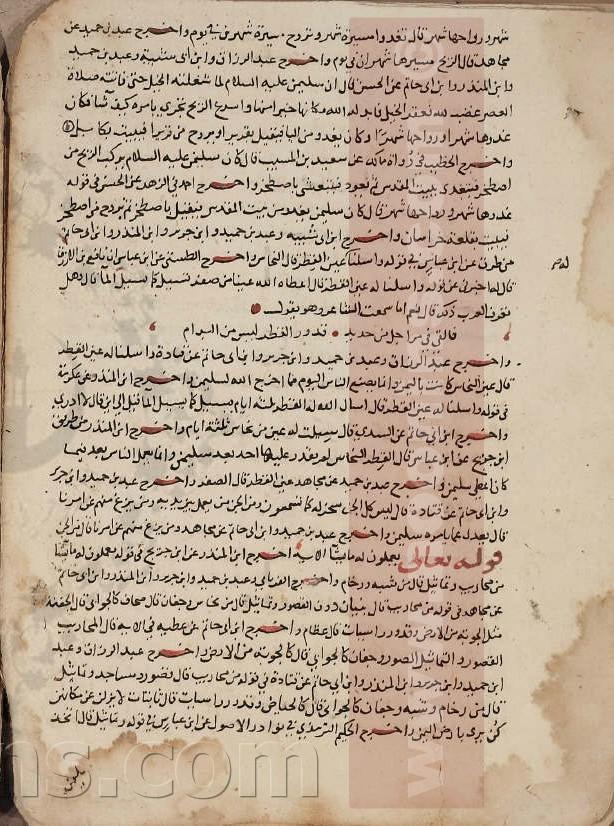 شهر ورواحها شهر قال تغدوا مسيرة شهر وتروح مسيرة شهر في يوم واخرج عبد بن حميد عن
مجاهد قال الريح مسيرها شهران في يوم واخرج عبد الرزاق وابن ابى شيبة وعبد بن حميد
وابن المنذر وابن ابى حاتم عن الحسن قال ان سليمن عليه السلام لما شغلته الخيل حتى فاتته صلاة
العصر غضب لله فعقر الخيل فابدله الله مكانها خيرا منها واسرع الريح تجري بامره كيف شا فكان
غدوها شهرا ورواحها شهرا وكان يغدو من ايليا فيقيل بقريرا ويروح من قريرا فيبيت بكابل
واخرج الخطيب في رواة مالك عن سعيد بن المسيب قال كان سليمن عليه السلام يركب الريح من
اصطخر فيتغدى ببيت المقدس ثم يعود فيتعشى باصطخر واخرج احمد في الزهد عن الحسن في قوله
غدوها شهر ورواحها شهر قال كان سليمن يغدو من بيت المقدس فيقيل باصطخر ثم يروح من اصطخر
فيبيت بقلعة خراسان واخرج ابن ابى شيبه وعبد بن حميد وابن جرير وابن المنذر وابن ابى حاتم
من طرق عن ابن عباس في قوله واسلنا له عين القطر قال النحاس واخرج الطستي عن ابن عباس ان نافع بن الازرق
قال له اخبرنى عن قوله واسلنا له عين القطر قال اعطاه الله عينا من صفر تسيل كما يسيل الما قال وهل
تعرف العرب ذلك قال نعم اما سمعت الشاعر وهو يقول
فالقى في مراجل من حديد قدور القطر ليس من البرام
واخرج عبد الرزاق وعبد بن حميد وابن جرير وابن ابى حاتم عن قتادة واسلنا له عين القطر
قال عين النحاس كانت باليمن وانما يصنع الناس اليوم مما اخرج الله لسليمن واخرج ابن المنذر عن عكرمة
في قوله واسلنا له عين القطر قال اسال الله له القطر ثلثة ايام يسيل كما يسيل الما قيل الى اين قال لا ادري
واخرج ابن ابى حاتم عن السدي قال سيلت له عين من نحاس ثلثة ايام واخرج ابن المنذر من طريق
ابن جريج عن ابن عباس قال القطر النحاس لم يقدر عليها احد بعد سليمن وانما يعمل الناس بعد فيما
كان اعطى سليمن واخرج عبد بن حميد عن مجاهد عين القطر قال الصفر واخرج عبد بن حميد وابن جرير
وابن ابى حاتم عن قتادة قال ليس كل الجن سخر له كما تسمعون ومن الجن من يعمل بين يديه ومن يزغ منهم عن امرنا
قال يعدل عما يامره سليمن واخرج عبد بن حميد وابن ابى حاتم عن مجاهد ومن يزغ منهم عن امرنا قال من الجن
قوله تعالى يعملون له ما يشا الاية اخرج ابن المنذر عن ابن جريج في قوله يعملون له ما يشا
من محاريب وتماثيل قال من شبه ورخام واخرج الفريابى وعبد بن حميد وابن جرير وابن المنذر وابن ابى حاتم
عن مجاهد في قوله من محاريب قال بنيان دون القصور وتماثيل قال من نحاس وجفان قال صحاف كالجوابى قال الجفنة
مثل الجوبة من الارض وقدور راسيات قال عظام واخرج ابن ابى حاتم عن عطيه في الاية قال المحاريب
القصور والتماثيل الصور وجفان كالجوابى قال كالجوبة من الارض واخرج عبد الرزاق وعبد
ابن حميد وابن جرير وابن المنذر وابن ابى حاتم عن قتادة في قوله من محاريب قال قصور ومساجد وتماثيل
قال من رخام وشبه وجفان كالجوابى قال كالحياض وقدور راسيات قال ثابتات لا يزلن عن مكانهن
كن يرى بارض اليمن واخرج الحكيم الترمذي في نوادر الاصول عن ابن عباس في قوله وتماثيل قال اتخذ
ns.com